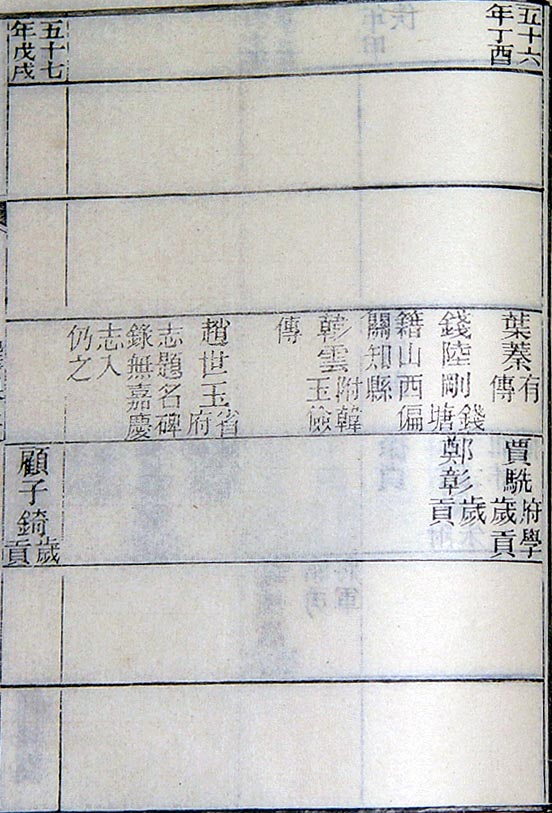 五十六
年丁酉
葉蓁有
傳
錢陸剛錢
塘
籍山西偏
關知縣
韓雲附韓
玉儉
傳
趙世玉省
府
志題名碑
錄無嘉慶
志入
仍之
賈駪府學
歲貢
鄭彰歲
貢
五十七
年戊戌
顧子錡歲
貢